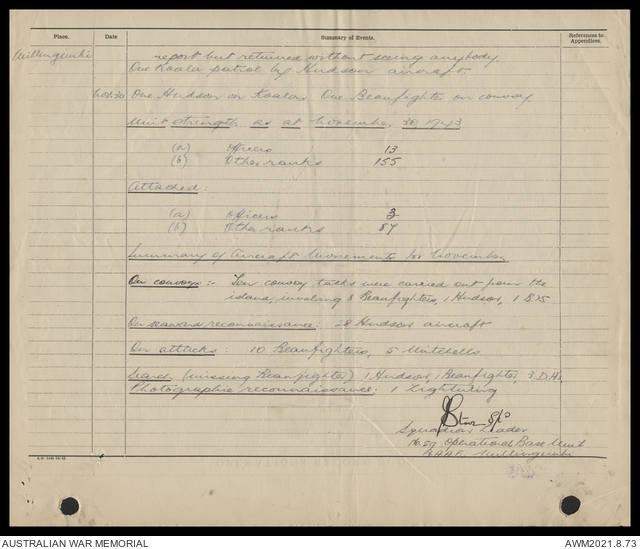 Place.
Date
Summary of Events.
References to Appendices.
Millingimbi report but returned without seeing anybody.
One Koala patrol by Hudson aircraft.
Nov. 30 One Hudson on Koala, One Beaufighter on convoy
Unit strength as at November 30 1943
(a) Officers 13
(b) Other ranks 155
Attached:
(a) Officers 3
(b) Other ranks 87
Summary of Aircraft Movements for November
On convoys :- Four convoy tasks were carried out from the
island, involving 8 Beaufighters, 1 Hudson, 1 B25
On seaward reconnaissance: 28 Hudson aircraft
On attacks : 10 Beaufighters, 5 Mitchells
Search (missing Beaufighter) 1 Hudson, 1 Beaufighter, 3 D.H.
Photographic reconnaissance: 1 Lightning
S/L
Squadron Leader
No. 59 Operational Base Unit
RAAF Millingimbi
AUSTRALIAN WAR MEMORIAL
AWM2021.8.73